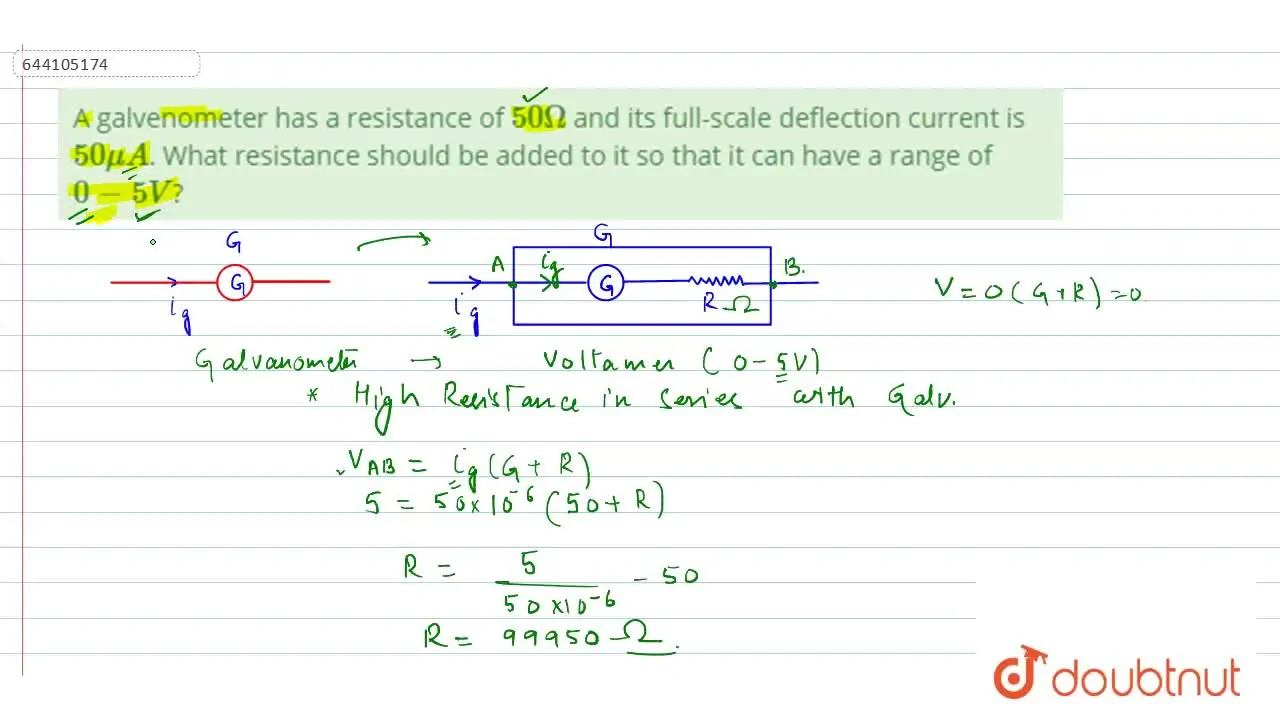 644105174
A galvenometer has a resistance of 50Ω and its full-scale deflection current is
50μA. What resistance should be added to it so that it can have a range of
0 − 5V?
G
G
ig
G
A
ig
G
B.
ig
R Ω
V = 0 (G+R) = 0
Galvanometer → Voltamer (0-5V)
* High Resistance in series with Galv.
VAB = ig (G + R)
5 = 50×10⁻⁶ (50+ R)
R = 5 / 50×10⁻⁶ − 50
R = 99950 Ω.
doubtnut